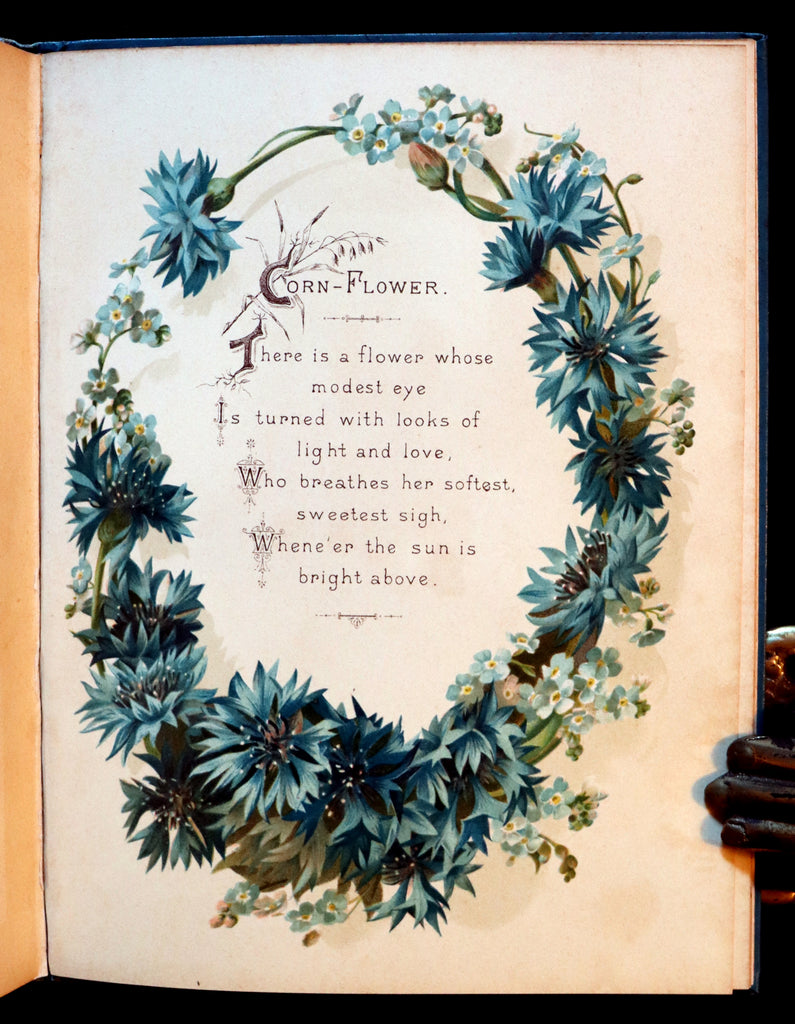 Corn-Flower.
There is a flower whose
modest eye
Is turned with looks of
light and love,
Who breathes her softest,
sweetest sigh,
Whene'er the sun is
bright above.